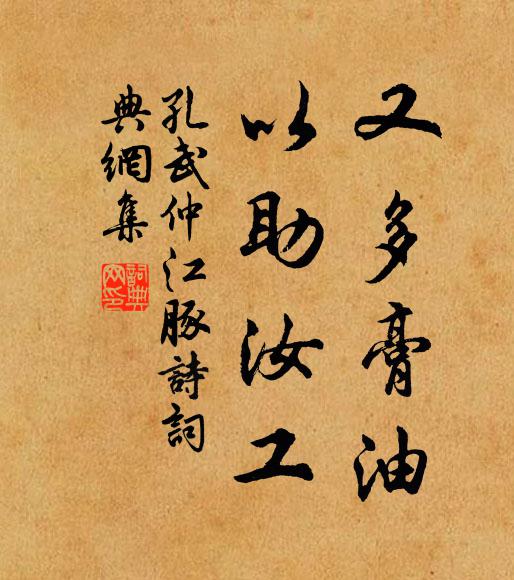 又多膏油
以助汝工
孔武仲江豚詩詞
典網集
詞典網印